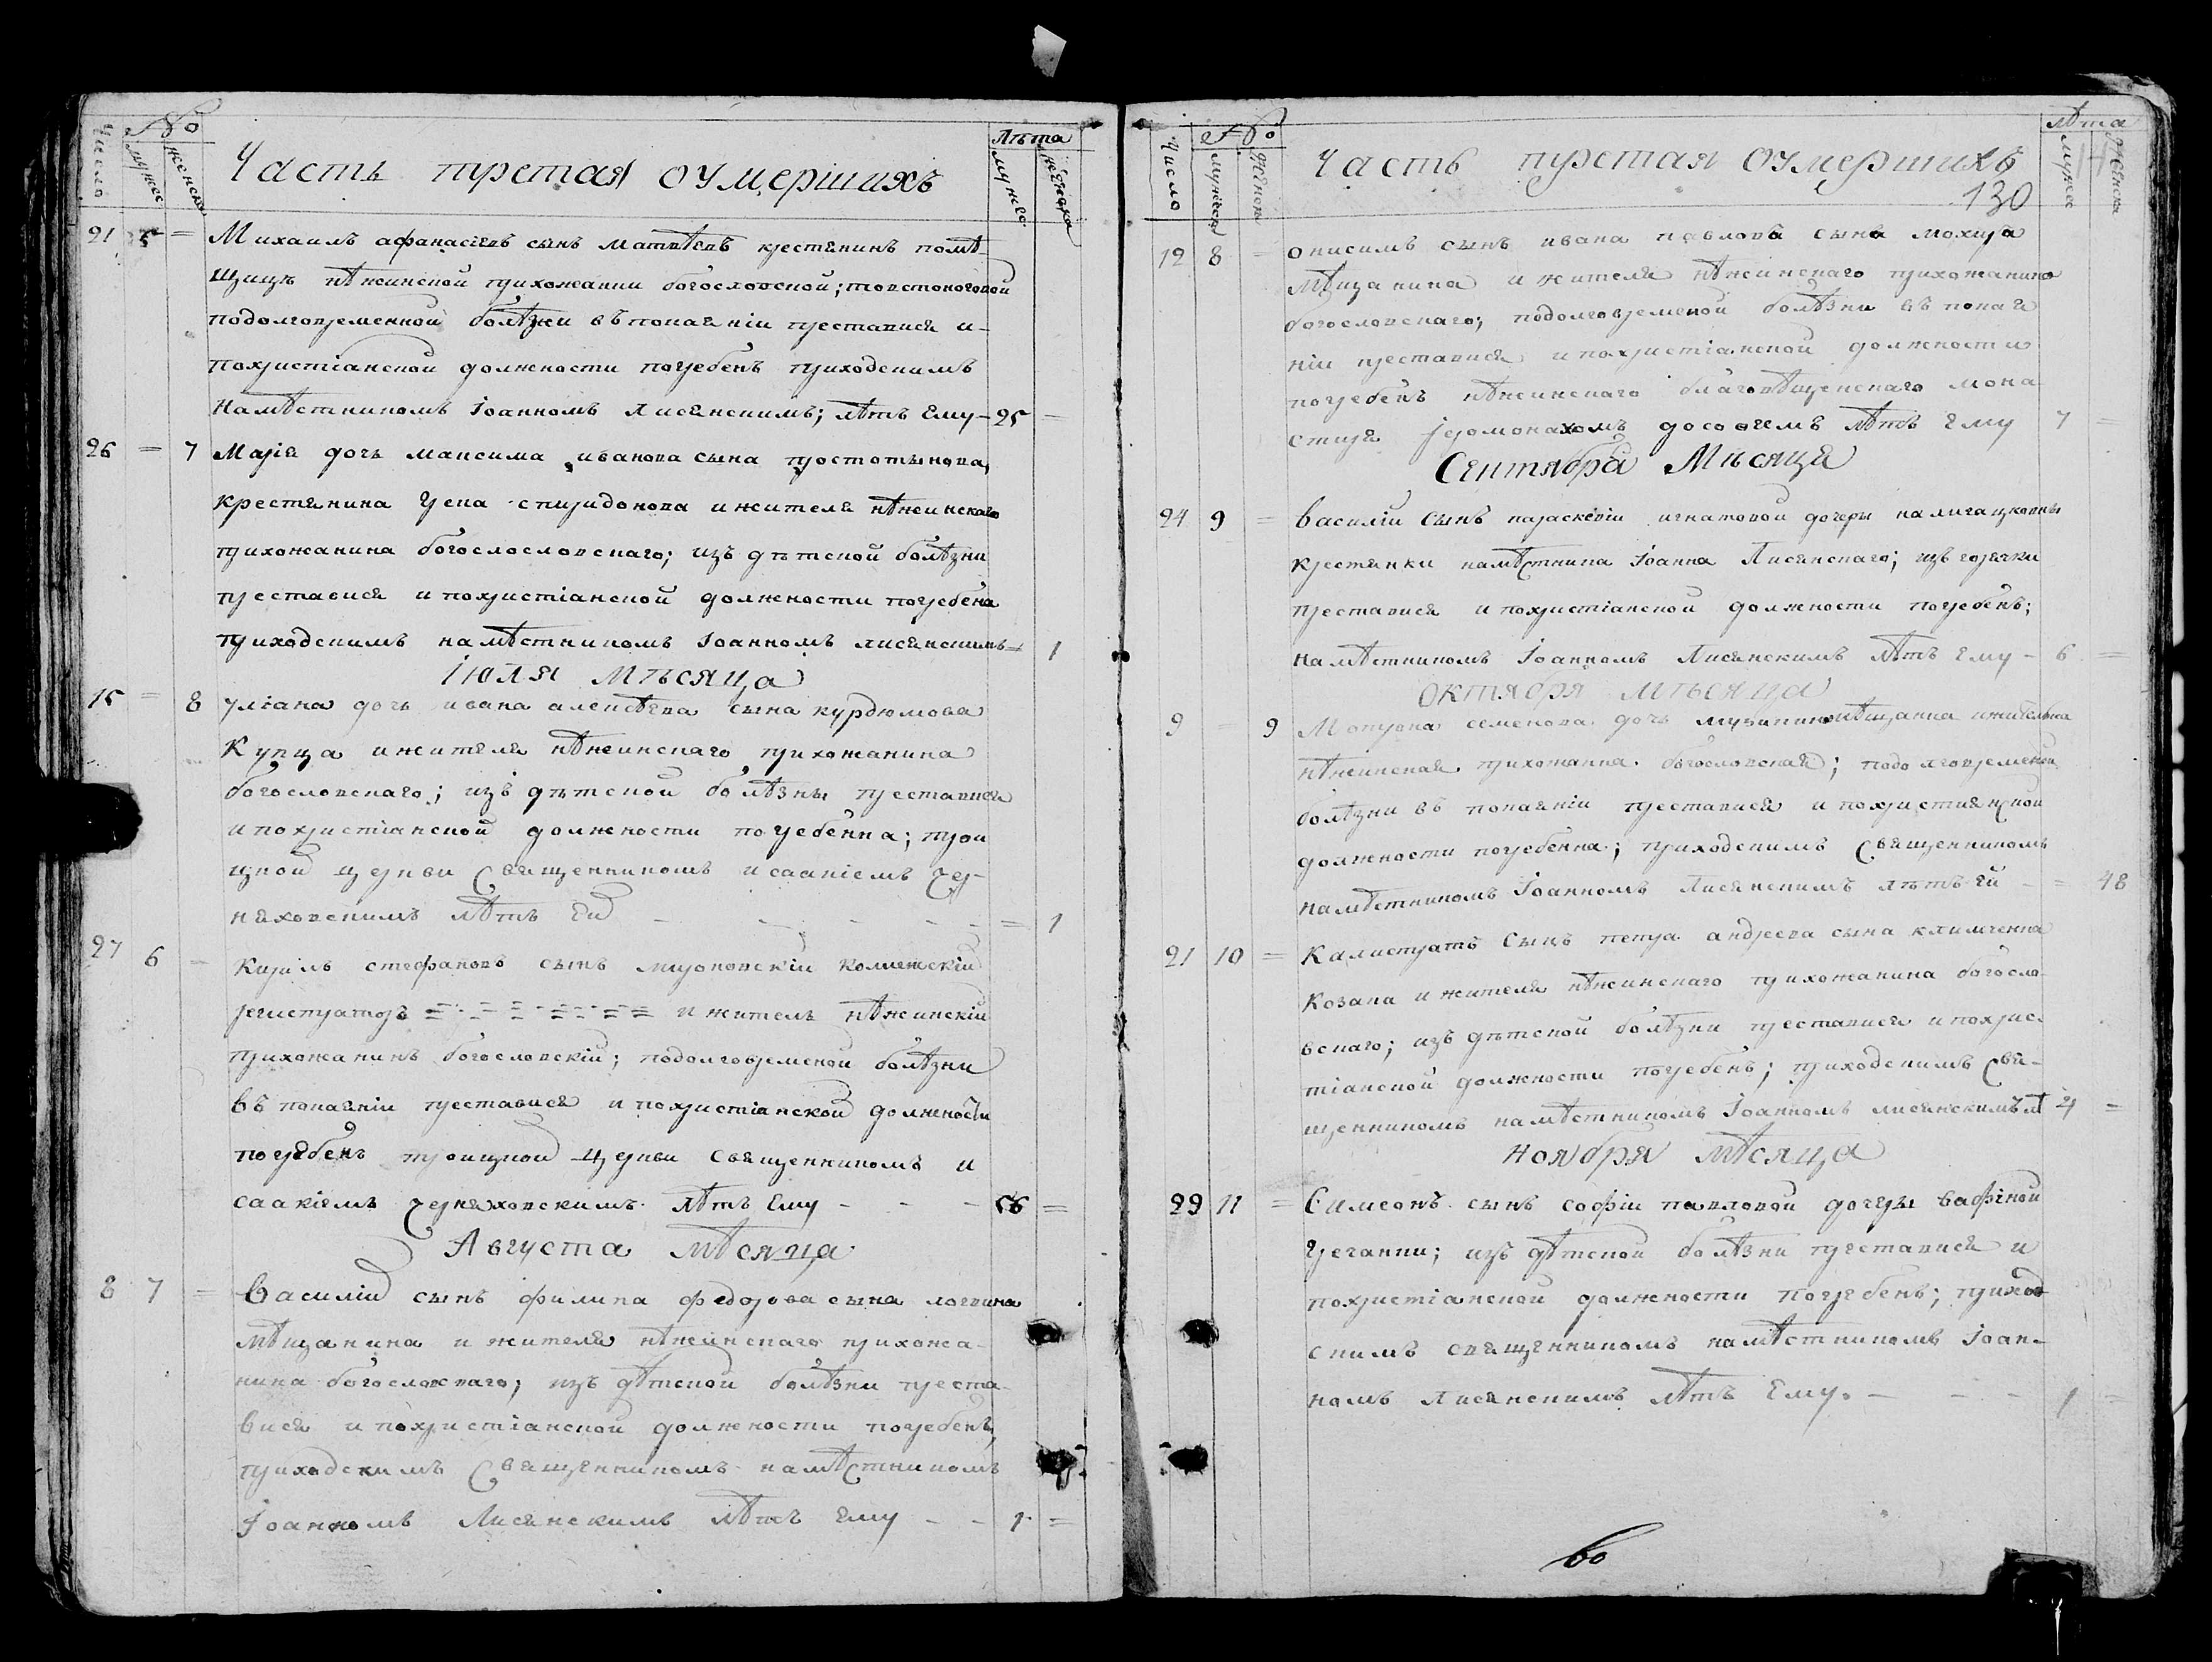 Число № мужес женска Часть третая оумершихъ Лѣта мужес женска
21 5 = Михаилъ афанасіевъ сынъ матвѣевъ крестянинъ помѣ-
щицѣ нѣжинской прихожанки богословской; товстоноговой
подолговременной болѣзни въ покаяніи преставися и-
похристіанской должности погребенъ приходскимъ
намѣстникомъ Іоанномъ лисянскимъ; лѣтъ Ему - 25 =
26 = 7 Марія дочь максима иванова сына простотынова,
крестянина грека спиридонова и жителя нѣжинскаго
прихожанина богослословскаго; изъ дѣтской болѣзни
преставися и похристіанской должности погребена
приходскимъ намѣстникомъ Іоанномъ лисянскимъ = 1
Іюля мѣсяца
15 = 8 уліана дочь ивана алексѣева сына курдюмова
Купца и жителя нѣжинскаго прихожанина
богословскаго; изъ дѣтской болѣзны преставися
и похристіанской должности погребенна; трои
цкой церкви священникомъ исаакіемъ чер-
няховскимъ лѣтъ Ей - - - - = 1
27 6 = Кирилъ стефановъ сынъ мировскій колежскій
регистраторъ = - = - = - = и житель нѣжинскій
прихожанинъ богословскій; подолговременой болѣзни
въ покаяніи преставися и похристіанской должности
погребенъ троицкой церкви священникомъ и
саакіемъ черняховскимъ лѣтъ Ему - - - 56 =
Августа мѣсяца
8 7 = Василій сынъ филипа федорова сына логвина
мѣщанина и жителя нѣжинскаго прихожа-
нина богословскаго; изъ дѣтской болѣзни преста-
вися и похристіанской должности погребенъ,
приходскимъ священникомъ намѣстникомъ
Іоанномъ Лисянскимъ лѣтъ Ему - - 1 =
Число № мужеск женск Часть третая оумершихъ Лѣта мужеск женска
130
12 8 = онисимъ сынъ ивана павлова сына мохира
мѣщанина и жителя нѣжинскаго прихожанина
богословскаго; подолговременой болѣзни въ покая
ніи преставися и похристіанской должности
погребенъ нѣжинскаго благовѣщенскаго мона
стиря Іеромонахомъ дософеемъ лѣтъ Ему 7 =
Сентября Мѣсяца
24 9 = Василій Сынъ параскевіи игнатовой дочеры
крестянки намѣстника Іоанна Лисянскаго; изъ горячки
преставися и похристіанской должности погребенъ;
намѣстникомъ Іоанномъ Лисянскимъ лѣтъ Ему - 6 =
октября мѣсяца
9 = 9 Мотрона семенова дочь мѣщанка и жителка
нѣжинская прихожанка богословская; подолговременой
болѣзни въ покаяніи преставися и похристиянской
должности погребенна; приходскимъ священникомъ
намѣстникомъ Іоанномъ Лисянскимъ лѣтъ ей - = 48
21 10 = Калистратъ Сынъ петра андреева сына климченка
Козака и жителя нѣжинскаго прихожанина богосло-
вскаго; изъ дѣтской болѣзни преставися и похрис-
тіанской должности погребенъ; приходскимъ Свя-
щенникомъ намѣстникомъ Іоанномъ лисянскимъ лѣ 4 =
Ноября мѣсяца
29 11 = Симеонъ сынъ софіи павловой дочеры вафіной
гречанки; изъ дѣтской болѣзни преставися и
похристіанской должности погребенъ; приход
скимъ священникомъ намѣстникомъ Іоан-
номъ Лисянскимъ лѣтъ Ему. - - - 1 =
во